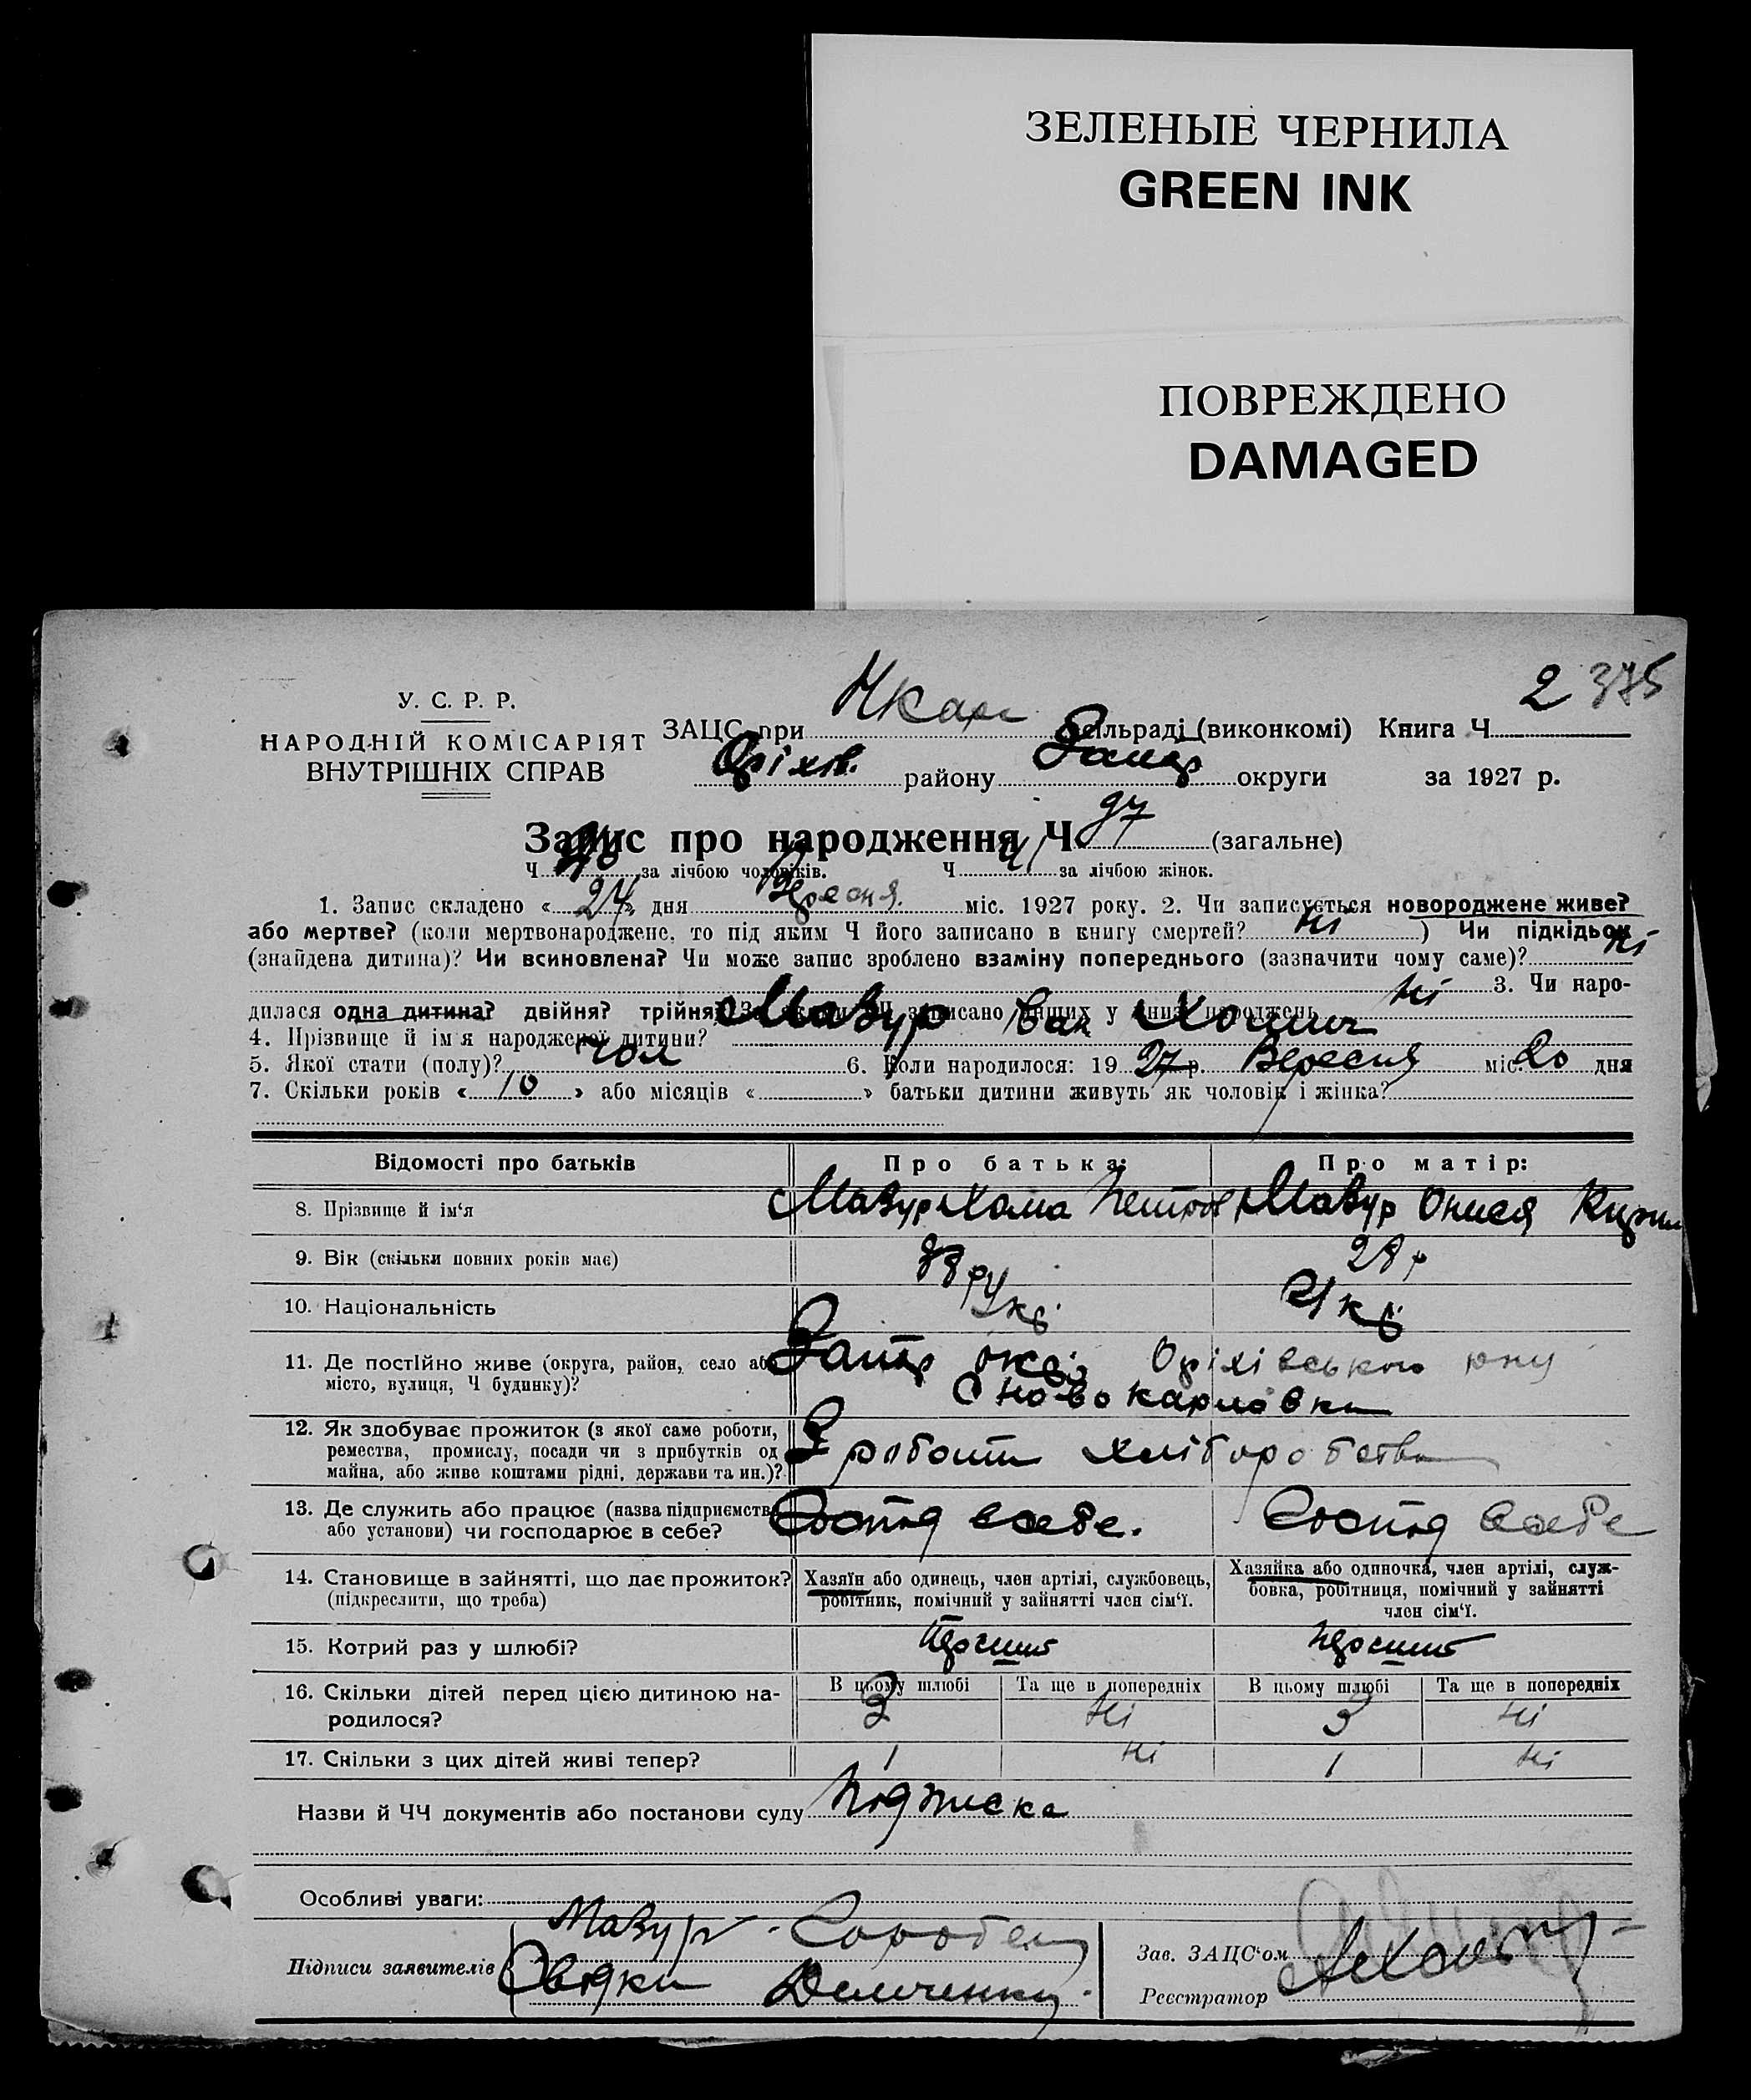 ЗЕЛЕНЫЕ ЧЕРНИЛА
GREEN INK
ПОВРЕЖДЕНО
DAMAGED
2 375
У. С. Р. Р.
НАРОДНІЙ КОМІСАРІЯТ
ВНУТРІШНІХ СПРАВ
ЗАЦС при Нкарл сільраді (виконкомі) Книга Ч.
Оріхів. району Запор округи за 1927 р.
Запис про народження Ч. 97 (загальне)
Ч. за лічбою чоловіків. Ч. за лічбою жінок.
1. Запис складено « 24 » дня міс. 1927 року. 2. Чи записується новороджене живе?
або мертве? (коли мертвонароджене, то під яким Ч його записано в книгу смертей? ні ) Чи підкідьок
(знайдена дитина)? Чи всиновлена? Чи може запис зроблено взаміну попереднього (зазначити чому саме)? ні
ні 3. Чи наро-
дилася одна дитина? двійня? трійня? записано инших у книзі народжень
4. Прізвище й ім'я народженої дитини? Мазур Іван Хомич
5. Якої стати (полу)? чол 6. Коли народилося: 19 27 р. Вересня міс. 20 дня
7. Скільки років « 10 » або місяців « » батьки дитини живуть як чоловік і жінка?
Відомості про батьків Про батька: Про матір:
8. Прізвище й ім'я Мазур Хома Петров Мазур Онися Кирил
9. Вік (скільки повних років має) 33 р 28 р
10. Національність Укр Укр
11. Де постійно живе (округа, район, село або Запор окр Оріхівського рну
місто, вулиця, Ч будинку)? С Ново карловка
12. Як здобуває прожиток (з якої саме роботи,
ремества, промислу, посади чи з прибутків од З роботи хліборобства
майна, або живе коштами рідні, держави та ин.)?
13. Де служить або працює (назва підприємства Господ в себе. Господ в себе
або установи) чи господарює в себе?
14. Становище в зайнятті, що дає прожиток? Хазяїн або одинець, член артілі, службовець, Хазяйка або одиночка, член артілі, служ-
(підкреслити, що треба) робітник, помічний у зайнятті член сім'ї. бовка, робітниця, помічний у зайнятті
член сім'ї.
15. Котрий раз у шлюбі?
16. Скільки дітей перед цією дитиною на- В цьому шлюбі Та ще в попередніх В цьому шлюбі Та ще в попередніх
родилося? 3 ні 3 ні
17. Скільки з цих дітей живі тепер? 1 ні 1 ні
Назви й ЧЧ документів або постанови суду Підписка
Особливі уваги:
Мазур
Підписи заявителів Свідки Демченко Зав. ЗАЦС'ом
Реєстратор